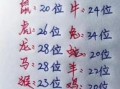 鼠: 20位 牛: 24位
虎: 26位 兔: 34位
龙: 28位 蛇: 20位
马: 28位 羊: 22位
猴: 23位